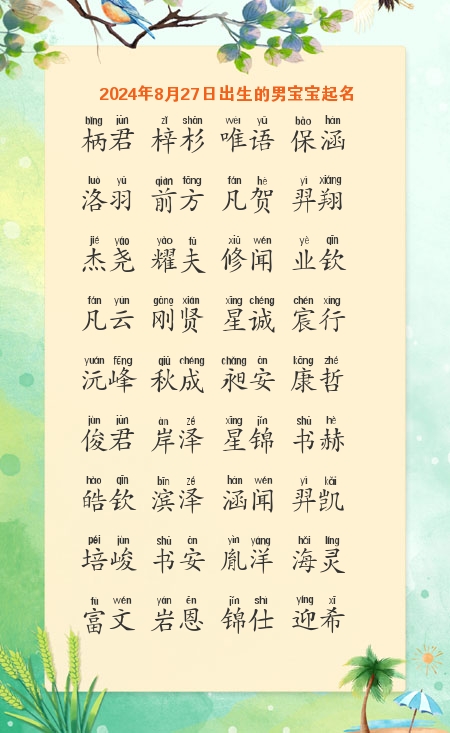 2024年8月27日出生的男宝宝起名
bǐng jūn zǐ shān wéi yǔ bǎo hán
柄君 梓杉 唯语 保涵
luò yǔ qián fāng fán hè yì xiáng
洛羽 前方 凡贺 羿翔
jié yáo yào fū xiū wén yè qīn
杰尧 耀夫 修闻 业钦
fán yún gāng xián xīng chéng chén xíng
凡云 刚贤 星诚 宸行
yuán fēng qiū chéng chǎng ān kāng zhé
沅峰 秋成 昶安 康哲
jùn jūn àn zé xīng jǐn shū hè
俊君 岸泽 星锦 书赫
hào qīn bīn zé hán wén yì kǎi
皓钦 滨泽 涵闻 羿凯
péi jùn shū ān yìn yáng hǎi líng
培峻 书安 胤洋 海灵
fù wén yán ēn jǐn shì yíng xī
富文 岩恩 锦仕 迎希